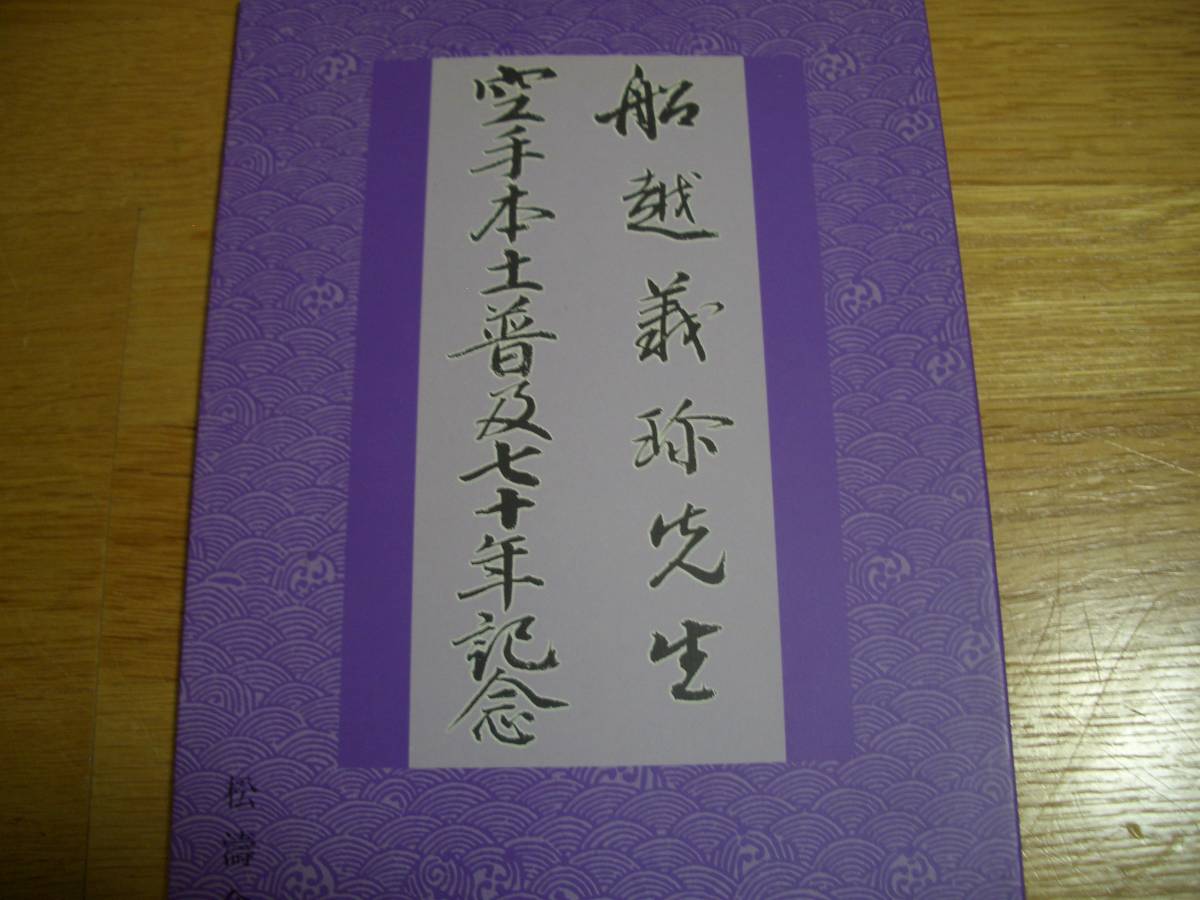 船越義珍先生
空手本土普及七十年記念
松濤